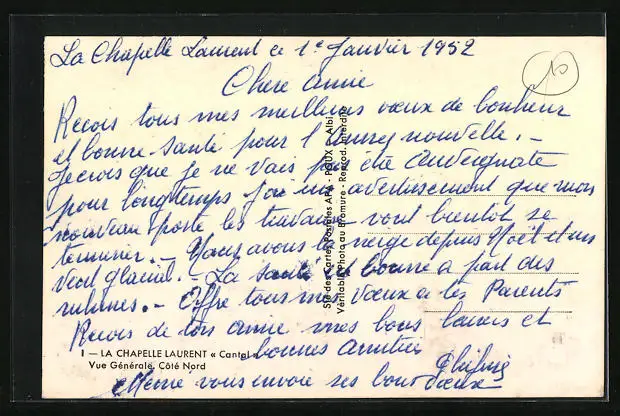 La Chapelle Laurent ce 1e Janvier 1952
Chere amie
Recois tous mes meilleurs vœux de bonheur
et bonne sante pour l'année nouvelle. -
Je crois que je ne vais pas été Auvergnate
pour longtemps j'ai un avertissement que mon
nouveau poste les travaux vont bientot se
terminer. - Nous avons la neige depuis Noël et un
vent glacial. - La santé est bonne a part des
rhumes. - Offre tous mes vœux a tes Parents
Recois de ton amie mes bons baisers et
bonnes amitiés
Meme vous envoie ses bons vœux
1 — LA CHAPELLE LAURENT « Cantal »
Vue Générale, Côté Nord
Sté des Cartes Postales APA - POUX - Albi
Véritable Photo au Bromure - Reprod. Interdite